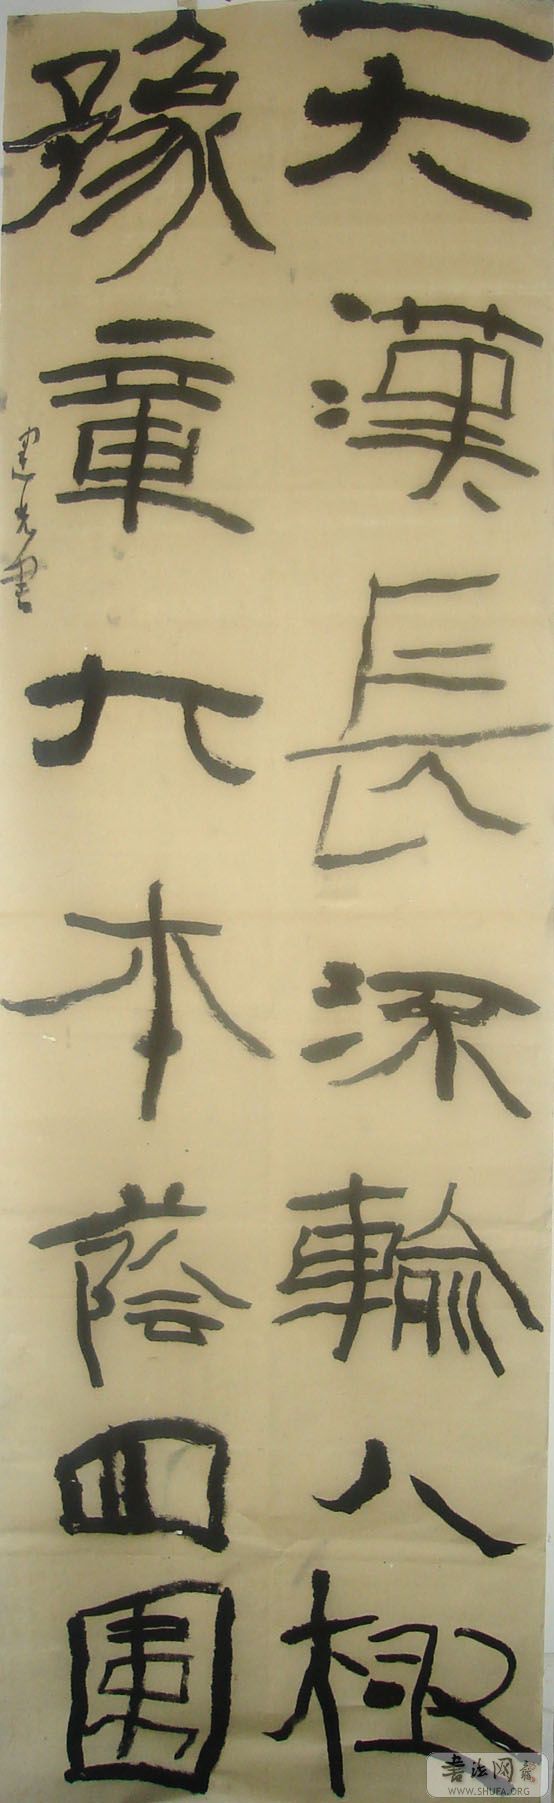 天漢長輸八極
豫章大本蔭四圍
建光書
書法网
WWW.SHUFA.ORG